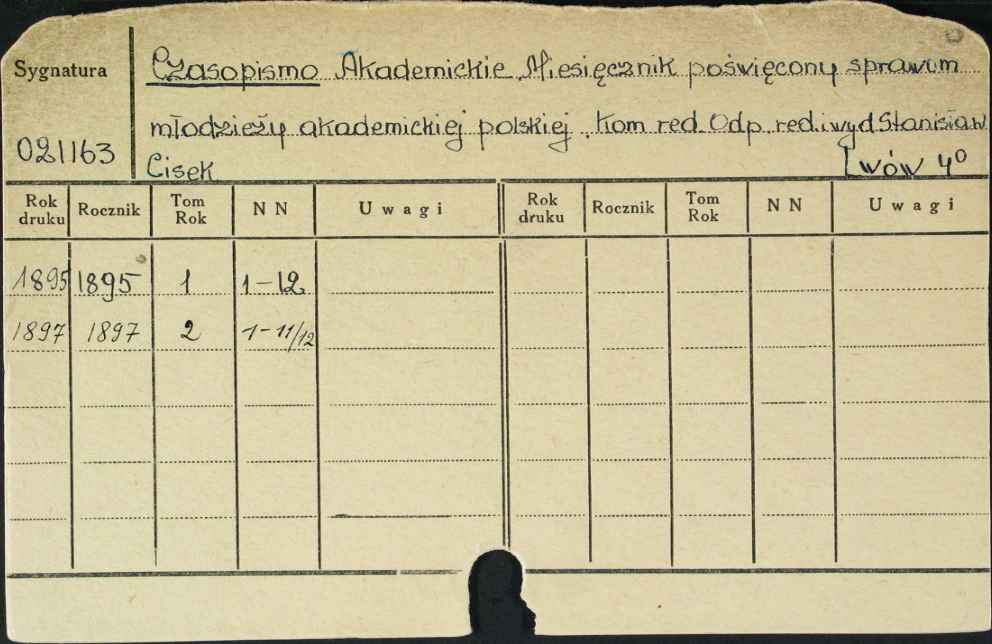 Sygnatura
Czasopismo Akademickie Miesięcznik poświęcony sprawom
młodzieży akademickiej polskiej. Kom red. Odp. red. i wyd Stanisław
021163 Cisek Lwów 4⁰
Rok druku Rocznik Tom Rok NN Uwagi Rok druku Rocznik Tom Rok NN Uwagi
1895 1895 1 1-12
1897 1897 2 1-11/12